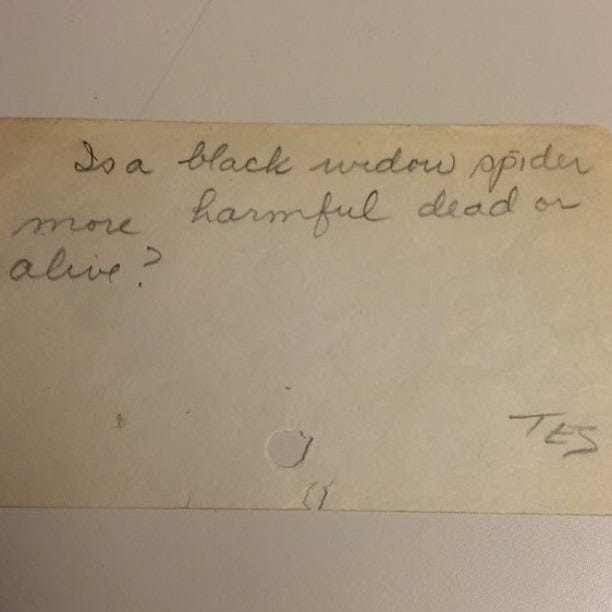 Is a black widow spider
more harmful dead or
alive?
TES